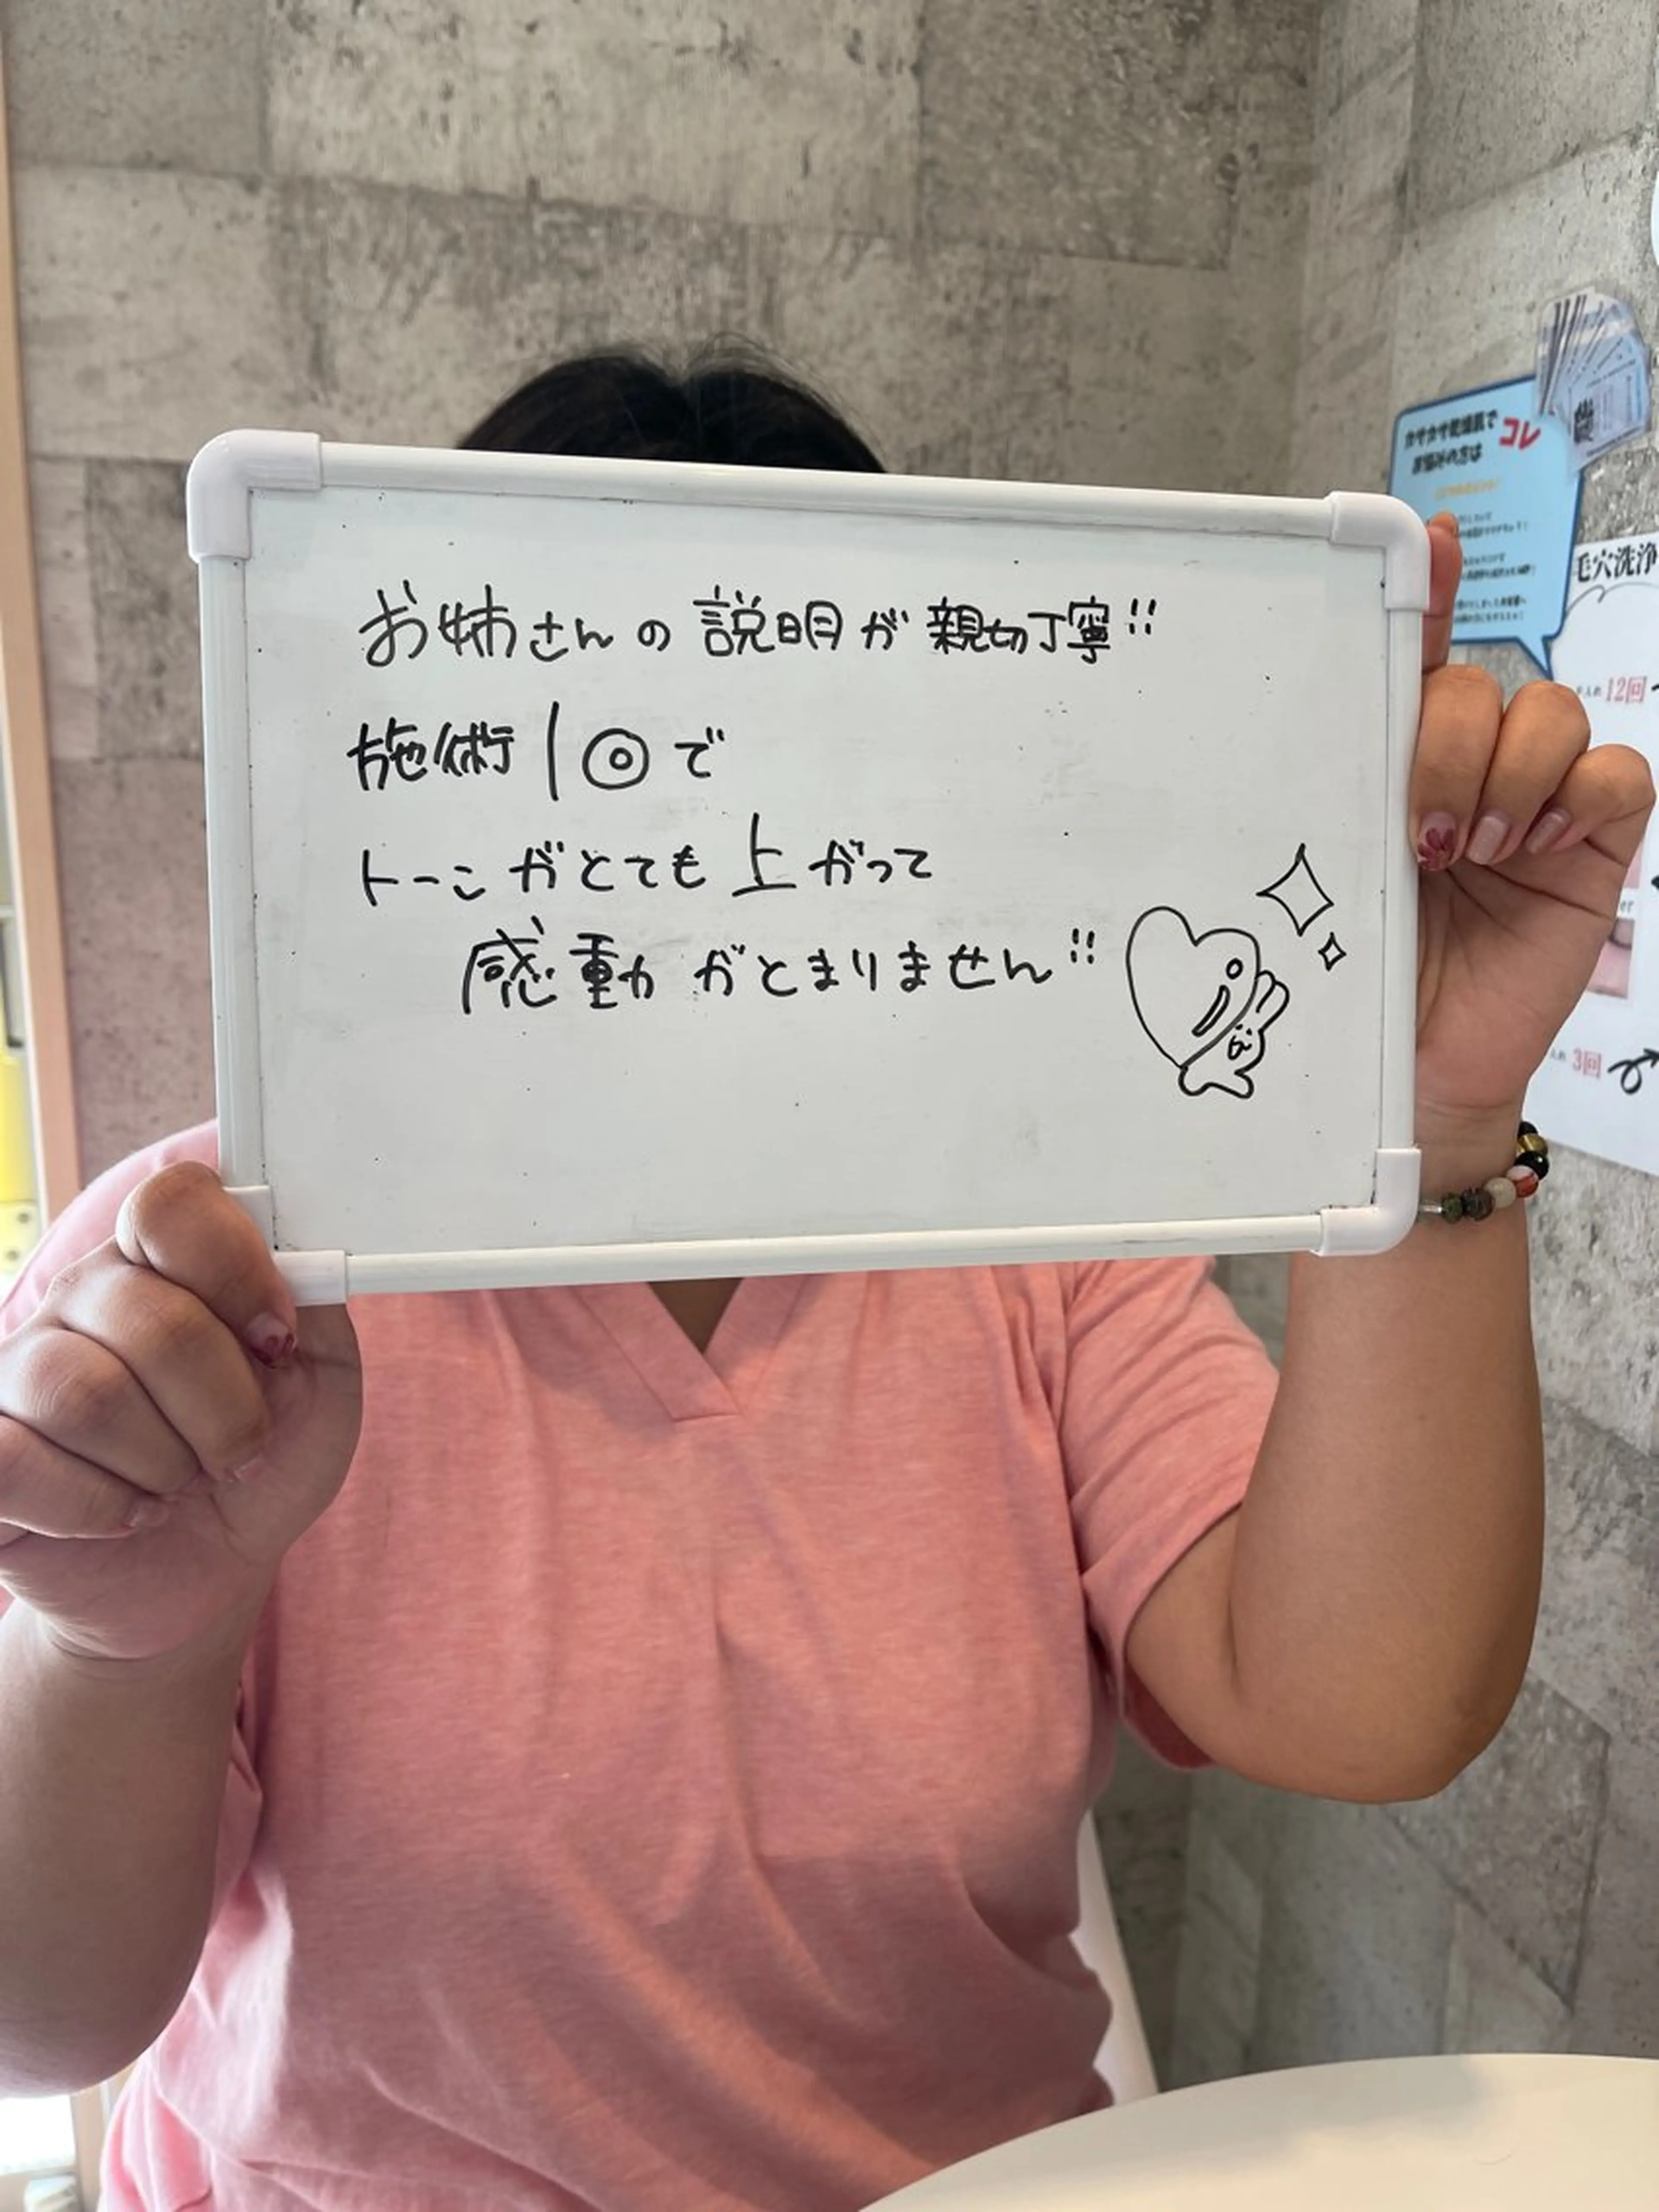 お姉さんの説明が親切丁寧!!
施術1回で
トーンがとても上がって
感動がとまりません!!
カサカサ乾燥肌で
お悩みの方は
コレ
毛穴洗浄
12回
3回